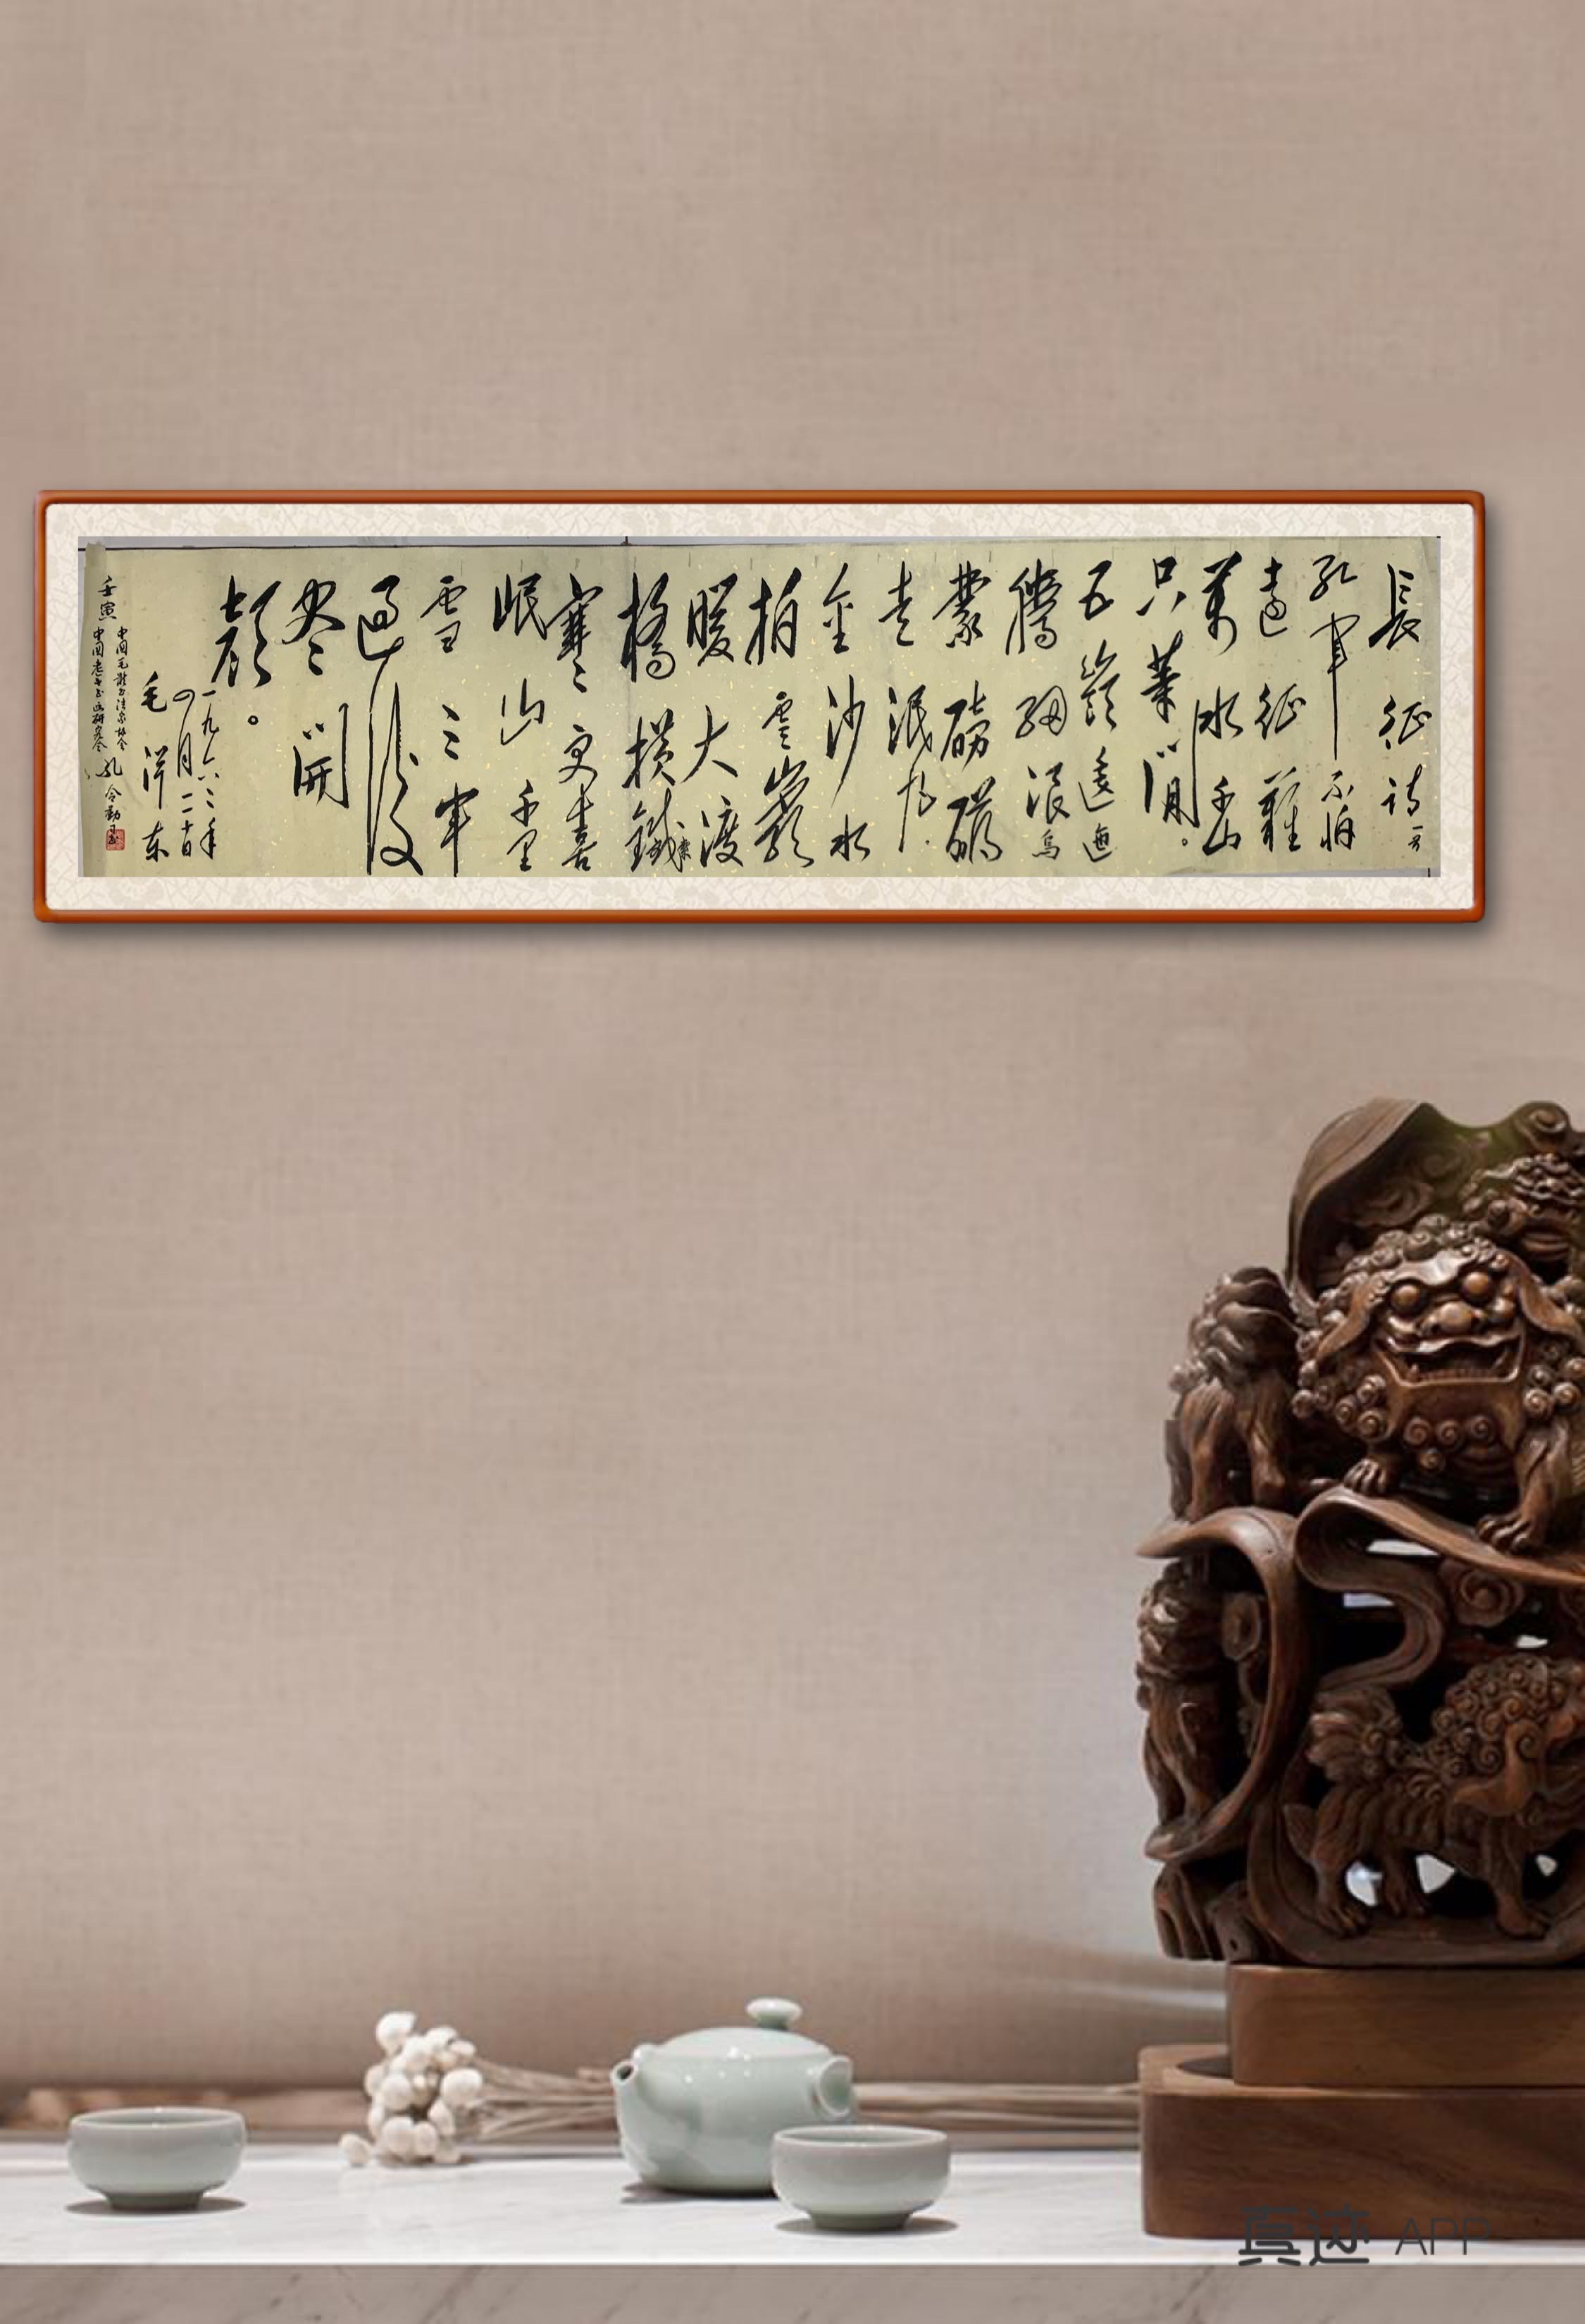 長征詩一首
紅軍不怕
遠征難
萬水千山
只等閒。
五嶺逶迤
騰細浪烏
蒙磅礴
走泥丸.
金沙水
拍雲巖
暖大渡
橋橫鐵索
寒更喜
岷山千里
雪三軍
過後
盡開
顏。
一九六二年
四月二十日
毛澤东
中国毛体书法家协会
壬寅 中国老年书画研究会 孔令勤
真迹 APP